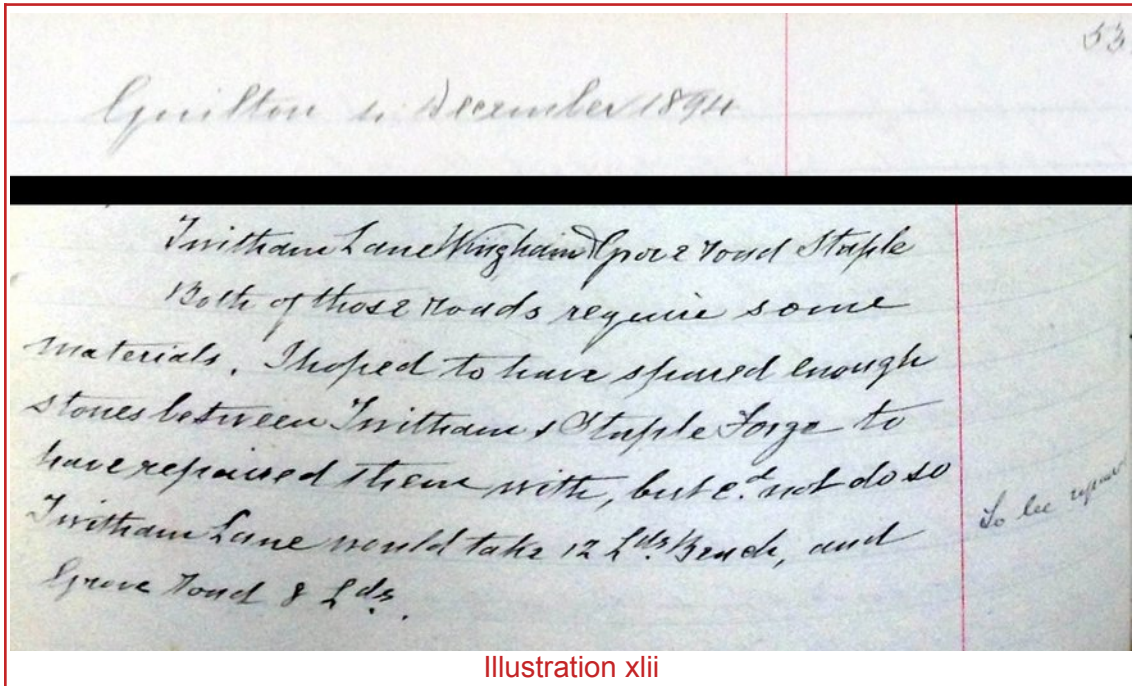 53
Guilton 4 December 1894
Twitham Lane Wingham & Grove road Staple
Both of those roads require some
materials. I hoped to have spared enough
stones between Twitham & Staple Forge to
have repaired them with, but cd. not do so
Twitham Lane would take 12 Lds. Beach, and
Grove road 8 Lds.
To be
Illustration xlii